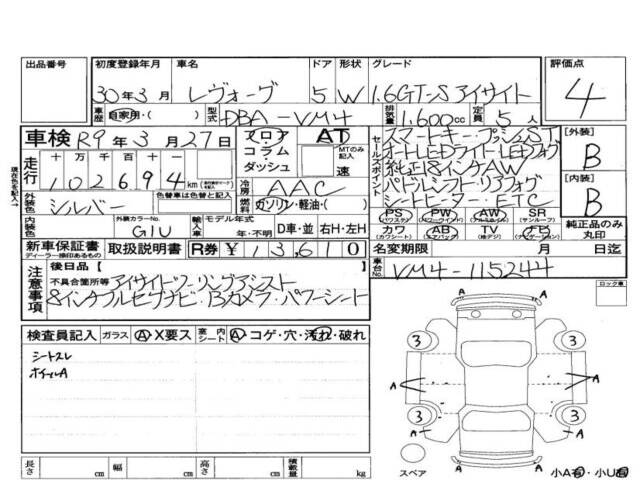 出品番号
初度登録年月 車名 ドア 形状 グレード 評価点
30年3月 レヴォーグ 5 W 1.6GT-S アイサイト 4
車歴 自家用・( ) 型式 DBA-VM4 排気量 1,600cc 定員 5人
車検 R9年3月27日 フロア・コラム・ダッシュ AT MTのみ記入 速
現在色を記入→
走行 十万千百十一
102694 km
冷房 AAC
外装色 シルバー 色替車は色替と記入 燃料 ガソリン・軽油・( )
内装色 外装カラーNo. G1U 輸入車 モデル年式 年・不明 D車・並 右H・左H
セールスポイント
スマートキー・プッシュST
オートLEDライト・LEDフォグ
純正18インチAW
パドルシフト・リアフォグ
シートヒーター・ETC
PS (パワステ) PW (パワーウィンドウ) AW (アルミホイール) SR (サンルーフ)
カワ (カワシート) AB (エアバック) TV (地デジ) ナビ (ナビゲーション)
純正品のみ丸印
[外装]
B
[内装]
B
新車保証書 ディーラー捺印あるもの 取扱説明書 R券 ¥13,610 名変期限 月 日迄
注意事項 後日品
不具合箇所等 アイサイトツーリングアシスト
8インチフルセグナビ・Bカメラ・パワーシート
車台No. VM4-115244
ロック車
検査員記入 ガラス A・X要ス 室内シート A・コゲ・穴・汚れ・破れ
シートスレ
ホイールA
A A
3 3
A A
3 3
A A
A A
スペア
小A有・小U有
長さ cm 幅 cm 高さ cm 積載量 kg